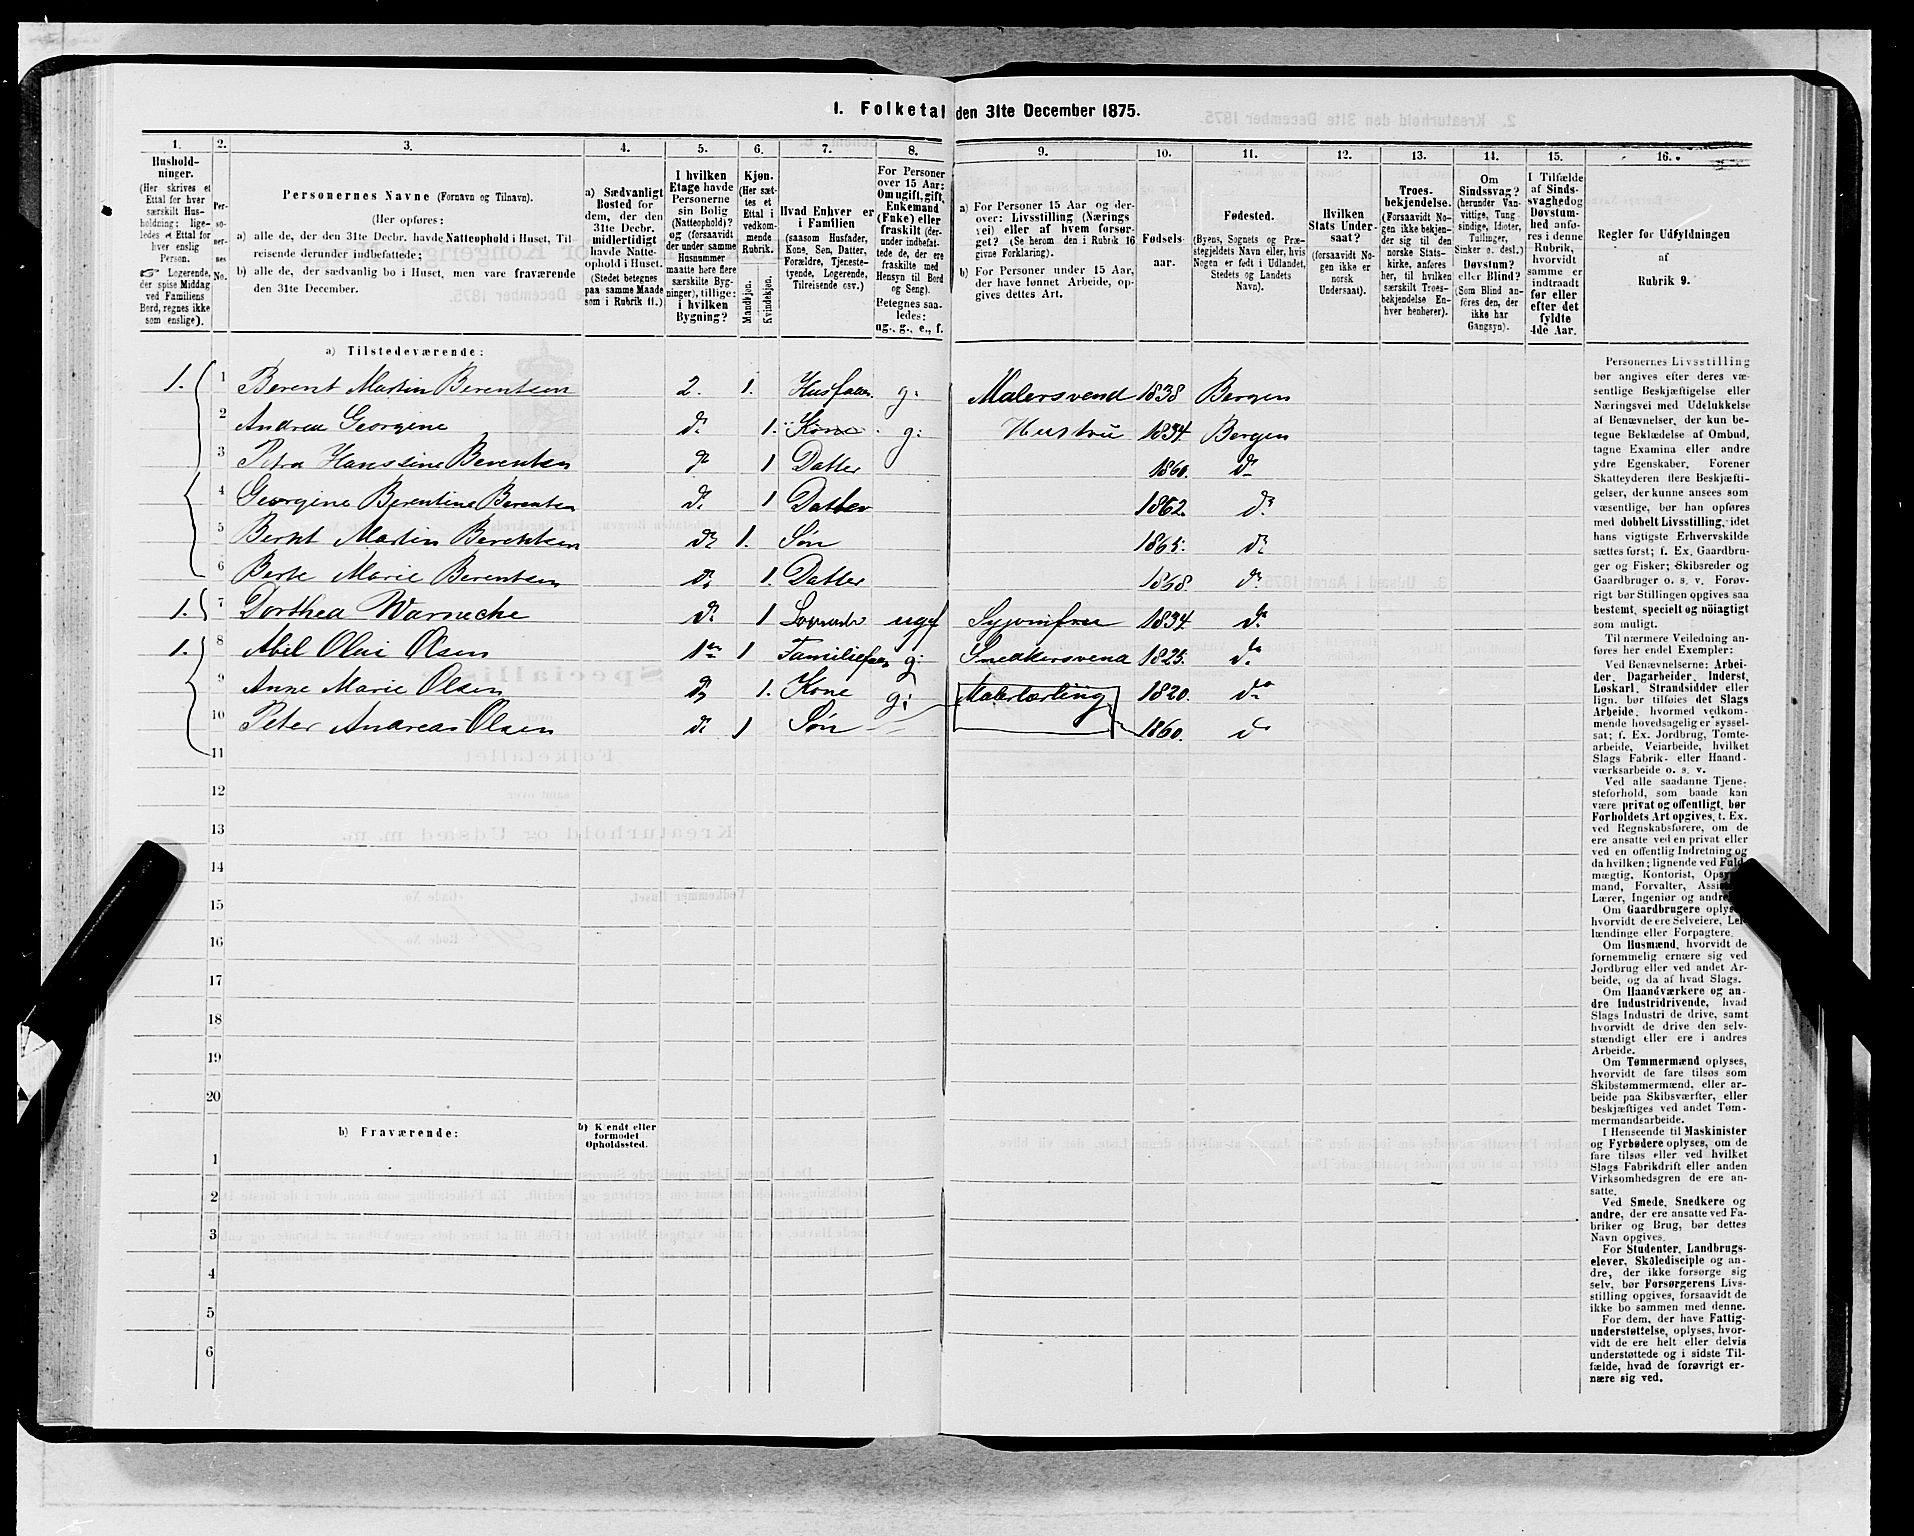 1. Folketal den 31te December 1875.
1.
Hushold-
ninger.
(Her skrives et
Ettal for hver
særskilt Hus-
holdning; lige-
ledes et Ettal for
hver enslig
Person.
☞ Logerende,
der spise Middag
ved Familiens
Bord, regnes ikke
som enslige).
2.
Per-
so-
ner-
nes
No.
3.
Personernes Navne (Fornavn og Tilnavn).
(Her opføres:
a) alle de, der den 31te Decbr. havde Natteophold i Huset, Til-
reisende derunder indbefattede;
b) alle de, der sædvanlig bo i Huset, men vare fraværende
den 31te December.
4.
a) Sædvanligt
Bosted for
dem, der den
31te Decbr.
midlertidigt
havde Natte-
ophold i Huset.
(Stedet betegnes
paa samme Maade
som i Rubrik 11.)
5.
I hvilken
Etage havde
Personerne
sin Bolig
(Natteophold)?
og (forsaavidt
der under samme
Husnummer
maatte høre flere
særskilte Byg-
ninger), tillige:
i hvilken
Bygning?
6.
Kjøn.
(Her sæt-
tes et
Ettal i
vedkom-
mende
Rubrik.
Mandkjøn.
Kvindekjøn.
7.
Hvad Enhver er
i Familien
(saasom Husfader,
Kone, Søn, Datter,
Forældre, Tjeneste-
tyende, Logerende,
Tilreisende osv.)
8.
For Personer
over 15 Aar:
Om ugift, gift,
Enkemand
(Enke) eller
fraskilt (der-
under indbefat-
tede de, der ere
fraskilte med
Hensyn til Bord
og Seng).
Betegnes saa-
ledes:
ug., g., e., f.
9.
a) For Personer 15 Aar og der-
over: Livsstilling (Nærings
vei) eller af hvem forsør-
get? (Se herom den i Rubrik 16
givne Forklaring).
b) For Personer under 15 Aar,
der have lønnet Arbeide, op-
gives dettes Art.
10.
Fødsels-
aar.
11.
Fødested.
(Byens, Sognets og Præ-
stegjeldets Navn eller, hvis
Nogen er født i Udlandet,
Stedets og Landets
Navn).
12.
Hvilken
Stats Under-
saat?
(forsaavidt No-
gen ikke er
norsk
Undersaat).
13.
Troes-
bekjendelse.
(Forsaavidt No-
gen ikke bekjen-
der sig til den
norske Stats-
kirke, anføres
her, til hvilken
særskilt Troes-
bekjendelse En-
hver henhører).
14.
Om
Sindssvag?
(herunder Van-
vittige, Tung-
sindige, Idioter,
Tullinger,
Sinker o. desl.)
Døvstum?
eller Blind?
(Som Blind an-
føres den, der
ikke har
Gangsyn).
15.
I Tilfælde
af Sinds-
svaghed og
Døvstum-
hed anfø-
res i denne
Rubrik,
hvorvidt
samme er
indtraadt
før eller
efter det
fyldte
4de Aar.
16.
Regler for Udfyldningen
af
Rubrik 9.
a) Tilstedeværende:
1. 1 Berent Martin Berentsen 2. 1. Husfader g. Malersvend 1838 Bergen
2 Andrea Georgine d. 1. Kone g. Hustru 1834 Bergen
3 Petra Hanssine Berentsen do 1 Datter 1860. do
4 Georgine Berentine Berentsen d. 1 Datter 1862. do
5 Bernt Martin Berentsen do 1. Søn 1865. do
6 Berte Marie Berentsen do 1. Datter 1868. do
1. 7 Dorthea Warnecke do 1 Logerende ugf Syjomfru 1834. do
1. 8 Abil Olai Olsen 1ste 1 Familiefar g. Snedkersvend 1825. do
9 Anne Marie Olsen do 1. Kone g. Malerlærling 1820. do
10 Peter Andreas Olsen do 1 Søn 1860. do
11
12
13
14
15
16
17
18
19
20
b) Fraværende:
b) Kjendt eller
formodet
Opholdssted.
1
2
3
4
5
6
Personernes Livsstilling
bør angives efter deres væ-
sentlige Beskjæftigelse eller
Næringsvei med Udelukkelse
af Benævnelser, der kun be-
tegne Beklædelse af Ombud,
tagne Examina eller andre
ydre Egenskaber. Forener
Skatteyderen flere Beskjæfti-
gelser, der kunne ansees som
væsentlige, bør han opføres
med dobbelt Livsstilling, idet
hans vigtigste Erhvervskilde
sættes først; f. Ex. Gaardbru-
ger og Fisker; Skibsreder og
Gaardbruger o. s. v. Forøv-
rigt bør Stillingen opgives saa
bestemt, specielt og nøiagtigt
som muligt.
Til nærmere Veiledning an-
føres her endel Exempler:
Ved Benævnelserne: Arbei-
der, Dagarbeider, Inderst,
Løskarl, Strandsidder eller
lign. bør tilføies det Slags
Arbeide, hvormed vedkom-
mende hovedsagelig er syssel-
sat; f. Ex. Jordbrug, Tomte-
arbeide, Veiarbeide, hvilket
Slags Fabrik- eller Haand-
værksarbeide o. s. v.
Ved alle saadanne Tjene-
steforhold, som baade kan
være privat og offentligt, bør
Forholdets Art opgives, t. Ex.
ved Regnskabsførere, om de
ere ansatte ved en privat eller
ved en offentlig Indretning og
da hvilken; lignende ved Fuld-
mægtig, Kontorist,
mand, Forvalter,
Lærer, Ingeniør og
Om Gaardbrugere
hvorvidt de ere Selveiere, Lei-
lændinge eller Forpagtere.
Om Husmænd, hvorvidt de
fornemmelig ernære sig ved
Jordbrug eller ved andet Ar-
beide, og da af hvad Slags.
Om Haandværkere og an-
dre Industridrivende, hvad
Slags Industri de drive, samt
hvorvidt de drive den selv-
stændigt eller ere i andres
Arbeide.
Om Tømmermænd oplyses,
hvorvidt de fare tilsøs som
Skibstømmermænd, eller ar-
beide paa Skibsværfter, eller
beskjæftiges ved andet Tøm-
mermandsarbeide.
I Henseende til Maskinister
og Fyrbødere oplyses, om de
fare tilsøs eller ved hvilket
Slags Fabrikdrift eller anden
Virksomhedsgren de ere an-
satte.
Ved Smede, Snedkere og
andre, der ere ansatte ved Fa-
briker og Brug, bør dettes
Navn opgives.
For Studenter, Landbrugs-
elever, Skoledisciple og an-
dre, der ikke forsørge sig
selv, bør Forsørgerens Livs-
stilling opgives, forsaavidt de
ikke bo sammen med denne.
For dem, der have Fattig-
understøttelse, oplyses, hvor-
vidt de ere helt eller delvis
understøttede og i sidste Til-
fælde, hvad de forøvrigt er-
nære sig ved.